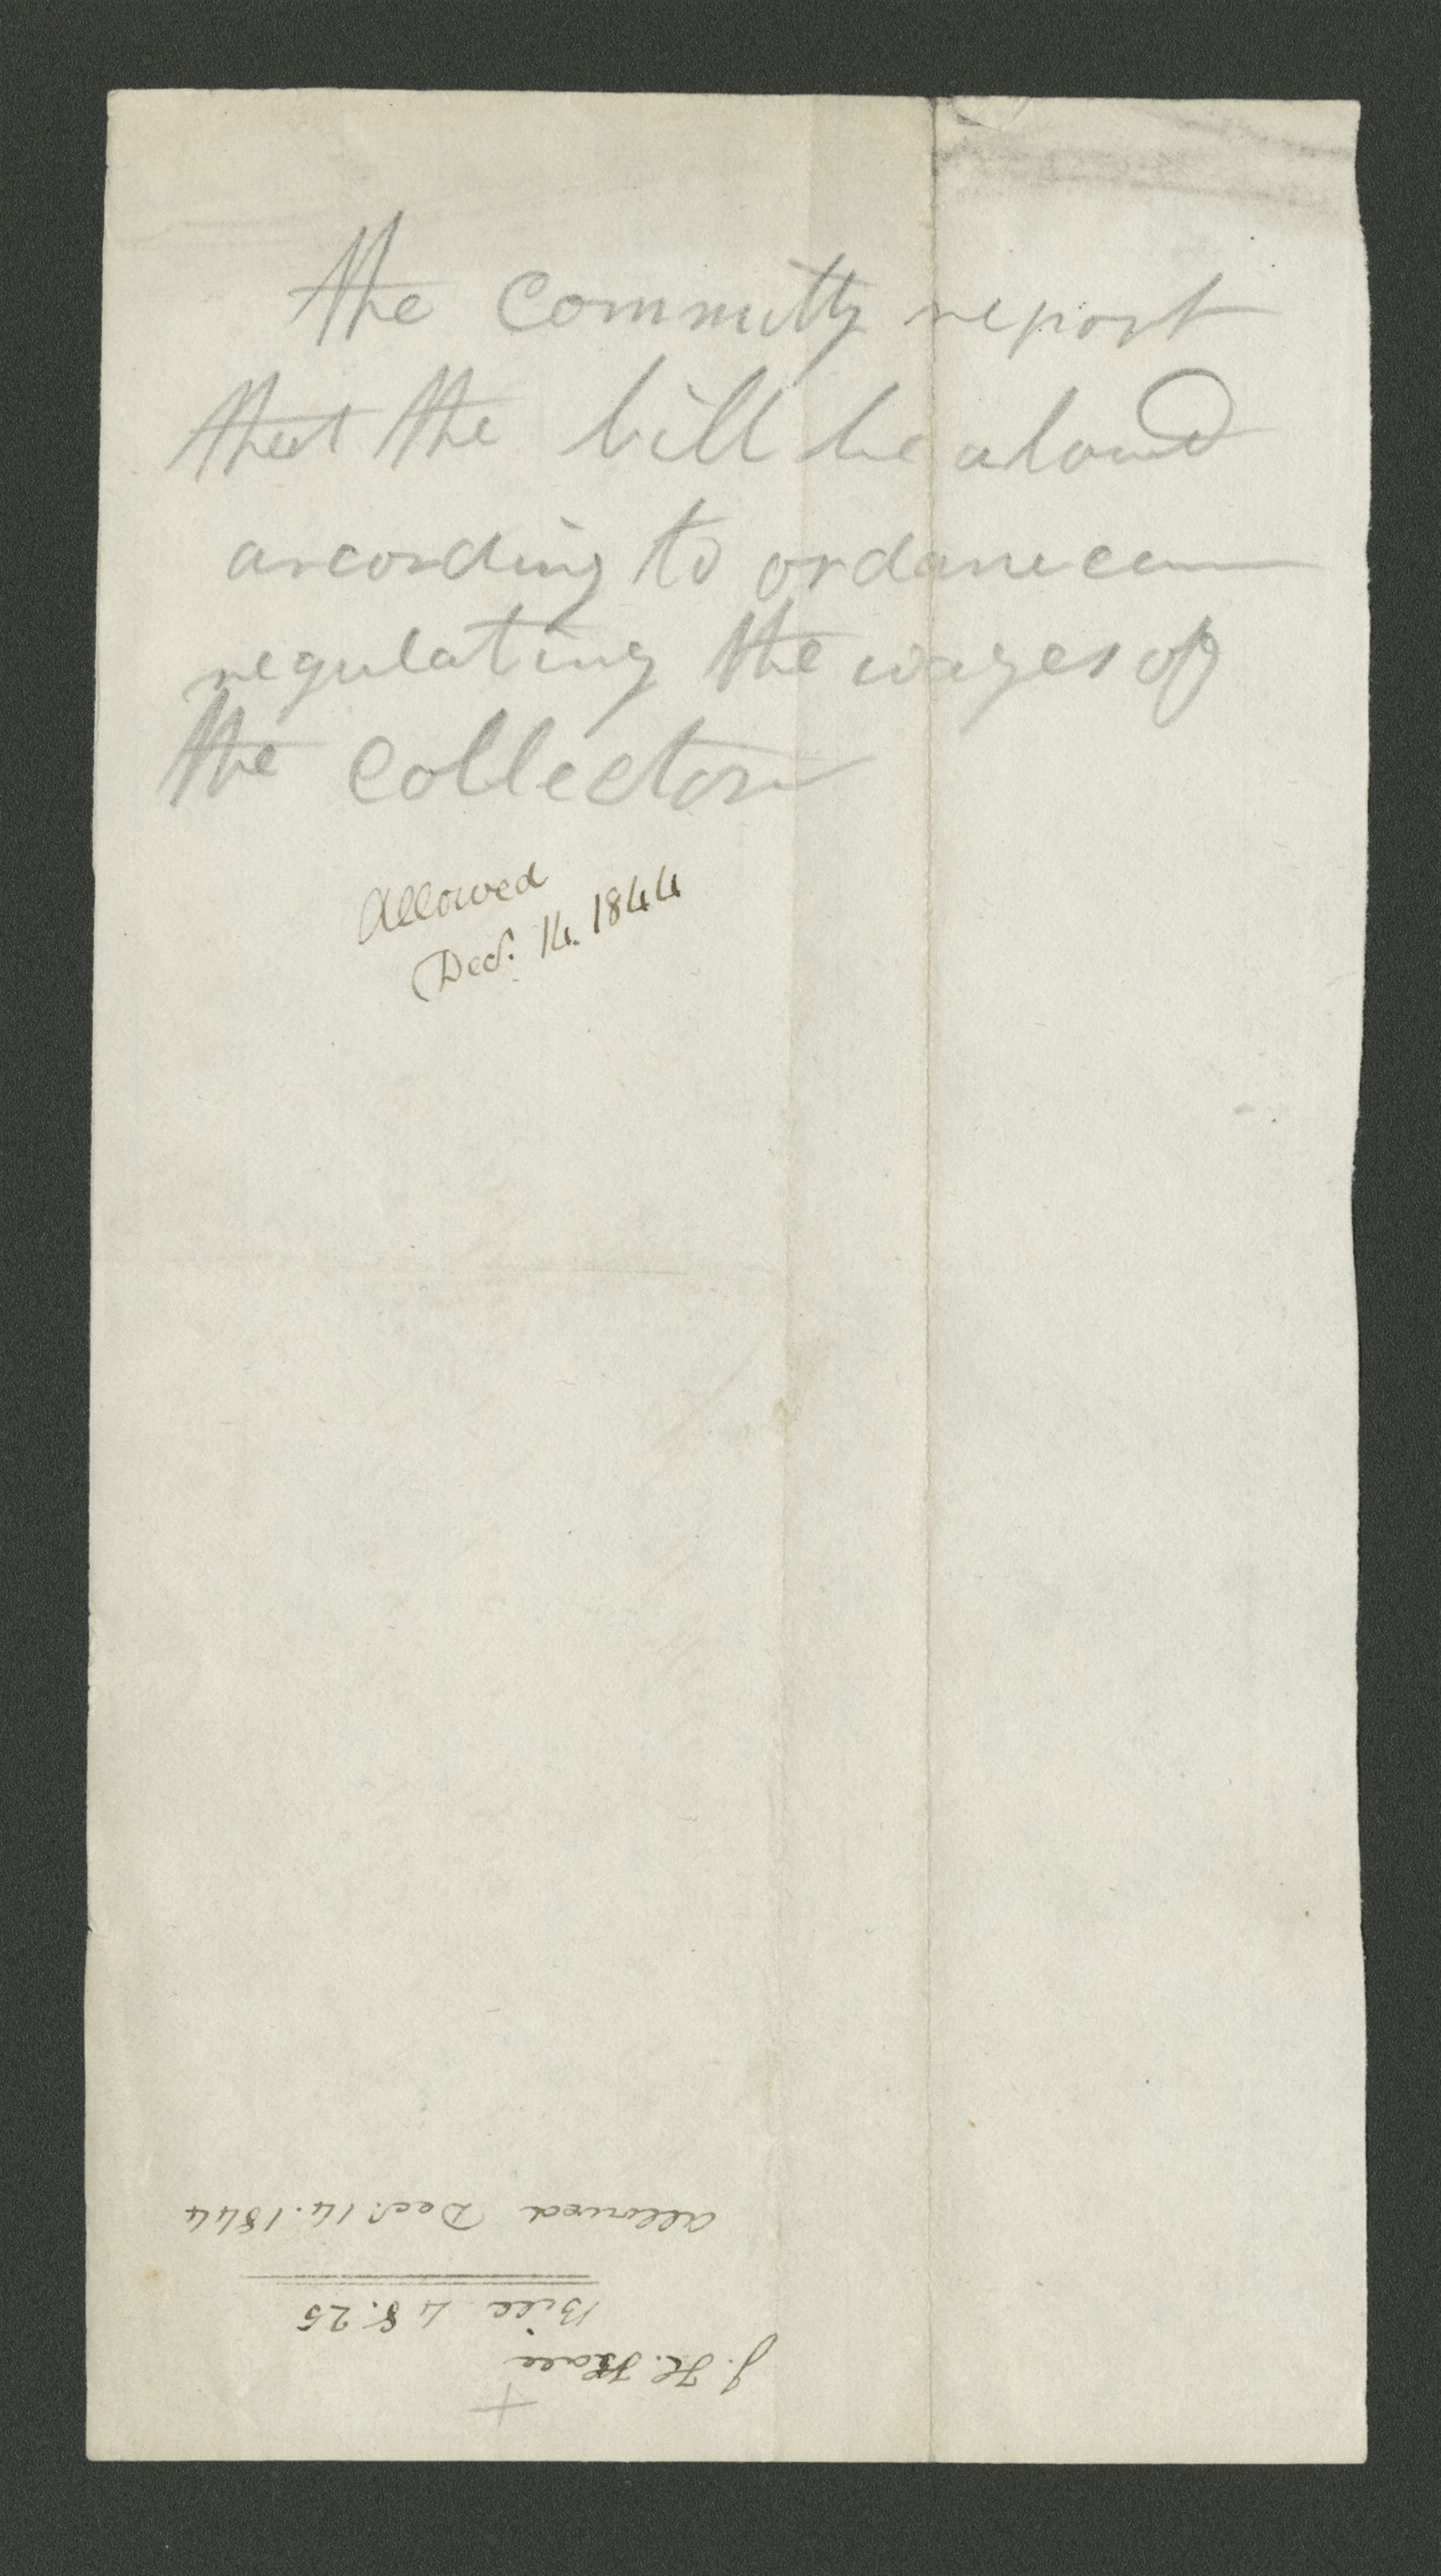 the committy report
that the bill be alowed
arcording to ordanecen
regulating the wages of
the collector
Allowed
Dec. 14. 1844
J. H. Hale
Bill 48.25
Allowed Dec. 14. 1844